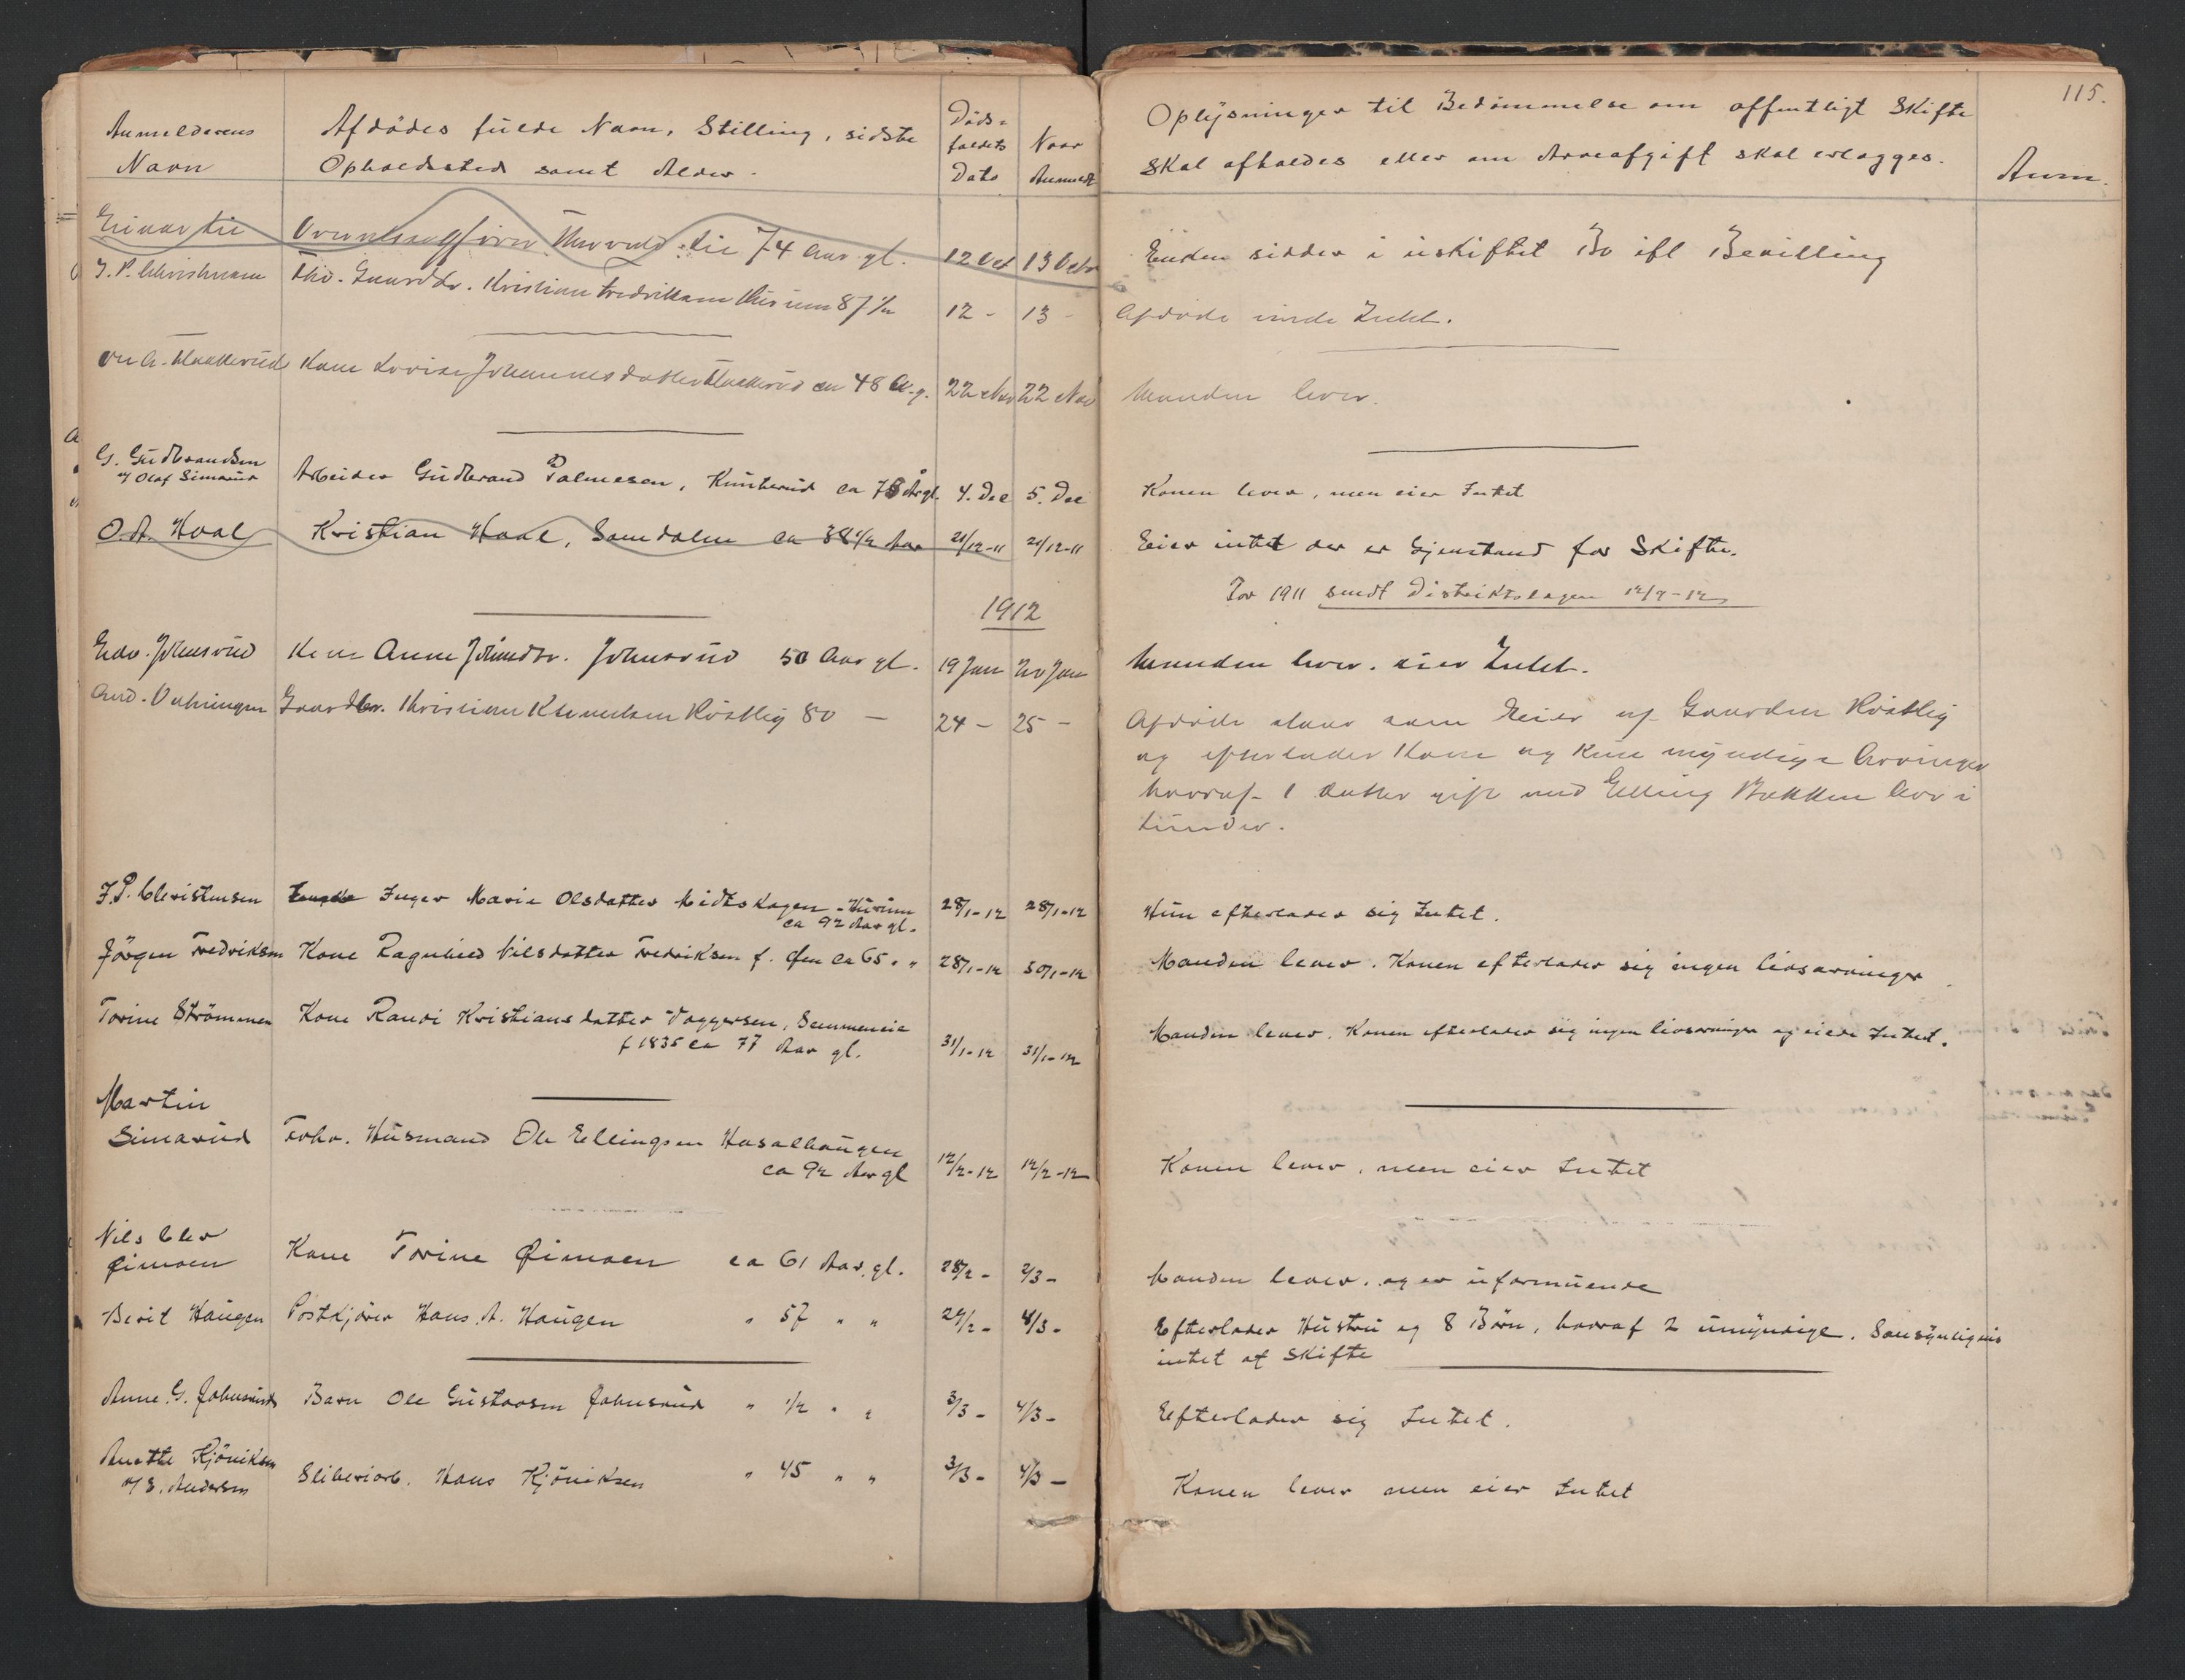 115.
Anmelderens Navn
Afdödes fulde Navn, Stilling, sidste
Opholdssted samt Alder.
Döds-
faldets
Dato
Naar
Anmeldt
Oplysninger til Bedömmelse om offentligt Skifte
skal afholdes eller om Arveafgift skal erlægges.
Anm.
Einar Lie Overretssagförer Thorvald Lie 74 Aar gl. 12 Oct 13 Octr Enken sidder i uskiftet Bo ifl Bevilling
J. P. Christensen Fhv. Gaardbr. Kristian Fredriksen Hurum 87 ½ 12 - 13 - Afdöde eiede Intet.
Kone Lovise Johannesdatter ca 48 A. g. 22 Nov 22 Nov Manden lever.
G. Gudbrandsen
v/ Olaf Simarud
Arbeider Gudbrand Palmesen, ca 78 År gl. 4. Dec 5. Dec Konen lever, men eier Intet
O. A. Hval Kristian Hval, Somdalen ca 38 ½ Aar 21/12-11 21/12-11 Eier intet der er Gjenstand for Skifte.
For 1911 sendt Distriktslægen 12/9-12
1912
Edv. Johnsrud Kone Anne Johnsdtr. Johnsrud 50 Aar gl. 19 Jan 20 Jan Manden lever. eier Intet.
And. Gaardbr. Kristian Knudsen Höstlig 80 — 24 - 25 - Afdöde staar som Eier af Gaarden Höstlig
og efterlader Kone og kun myndige Arvinger
hvoraf 1 datter gift med Elling Bakken bor i
Tunder.
J. P. Christensen Inger Marie Olsdatter Midtskogen - Hurum
ca 92 Aar gl.
28/1-12 28/1-12 Hun efterlader sig Intet.
Jörgen Fredriksen Kone Ragnhild Nilsdatter Fredriksen f. Öen ca 65 " " 28/1-12 30/1-12 Manden lever. Konen efterlader sig ingen livsarvinger
Torine Strömmen Kone Randi Kristiansdatter Vaggersen, Semmeneie
f 1835 ca 77 Aar gl.
31/1-12 31/1-12 Manden lever. Konen efterlader sig ingen livsarvinger og eiede Intet.
Martin
Simarud
Forhv. Husmand Ole Ellingsen Hasalhaugen
ca 92 Aar gl
12/2-12 12/2-12 Konen lever, men eier Intet
Nils Chr
Öimoen
Kone Torine Öimoen ca 61 Aar gl. 28/2 - 2/3 - Manden lever. og er uformuende
Berit Haugen Postkjörer Hans A. Haugen " 57 " " 29/2 - 4/3 - Efterlader Hustru og 8 Börn, hvoraf 2 umyndige. Sansynligvis
intet af Skifte
Anne G. Johnsrud Barn Ole Gustavsen Johnsrud " ½ " " 3/3 - 4/3 - Efterlader sig Intet.
Anette Kjöniksen
v/ E. Andersen
Sliberiarb. Hans Kjöniksen " 45 " " 3/3 - 4/3 - Konen lever men eier Intet